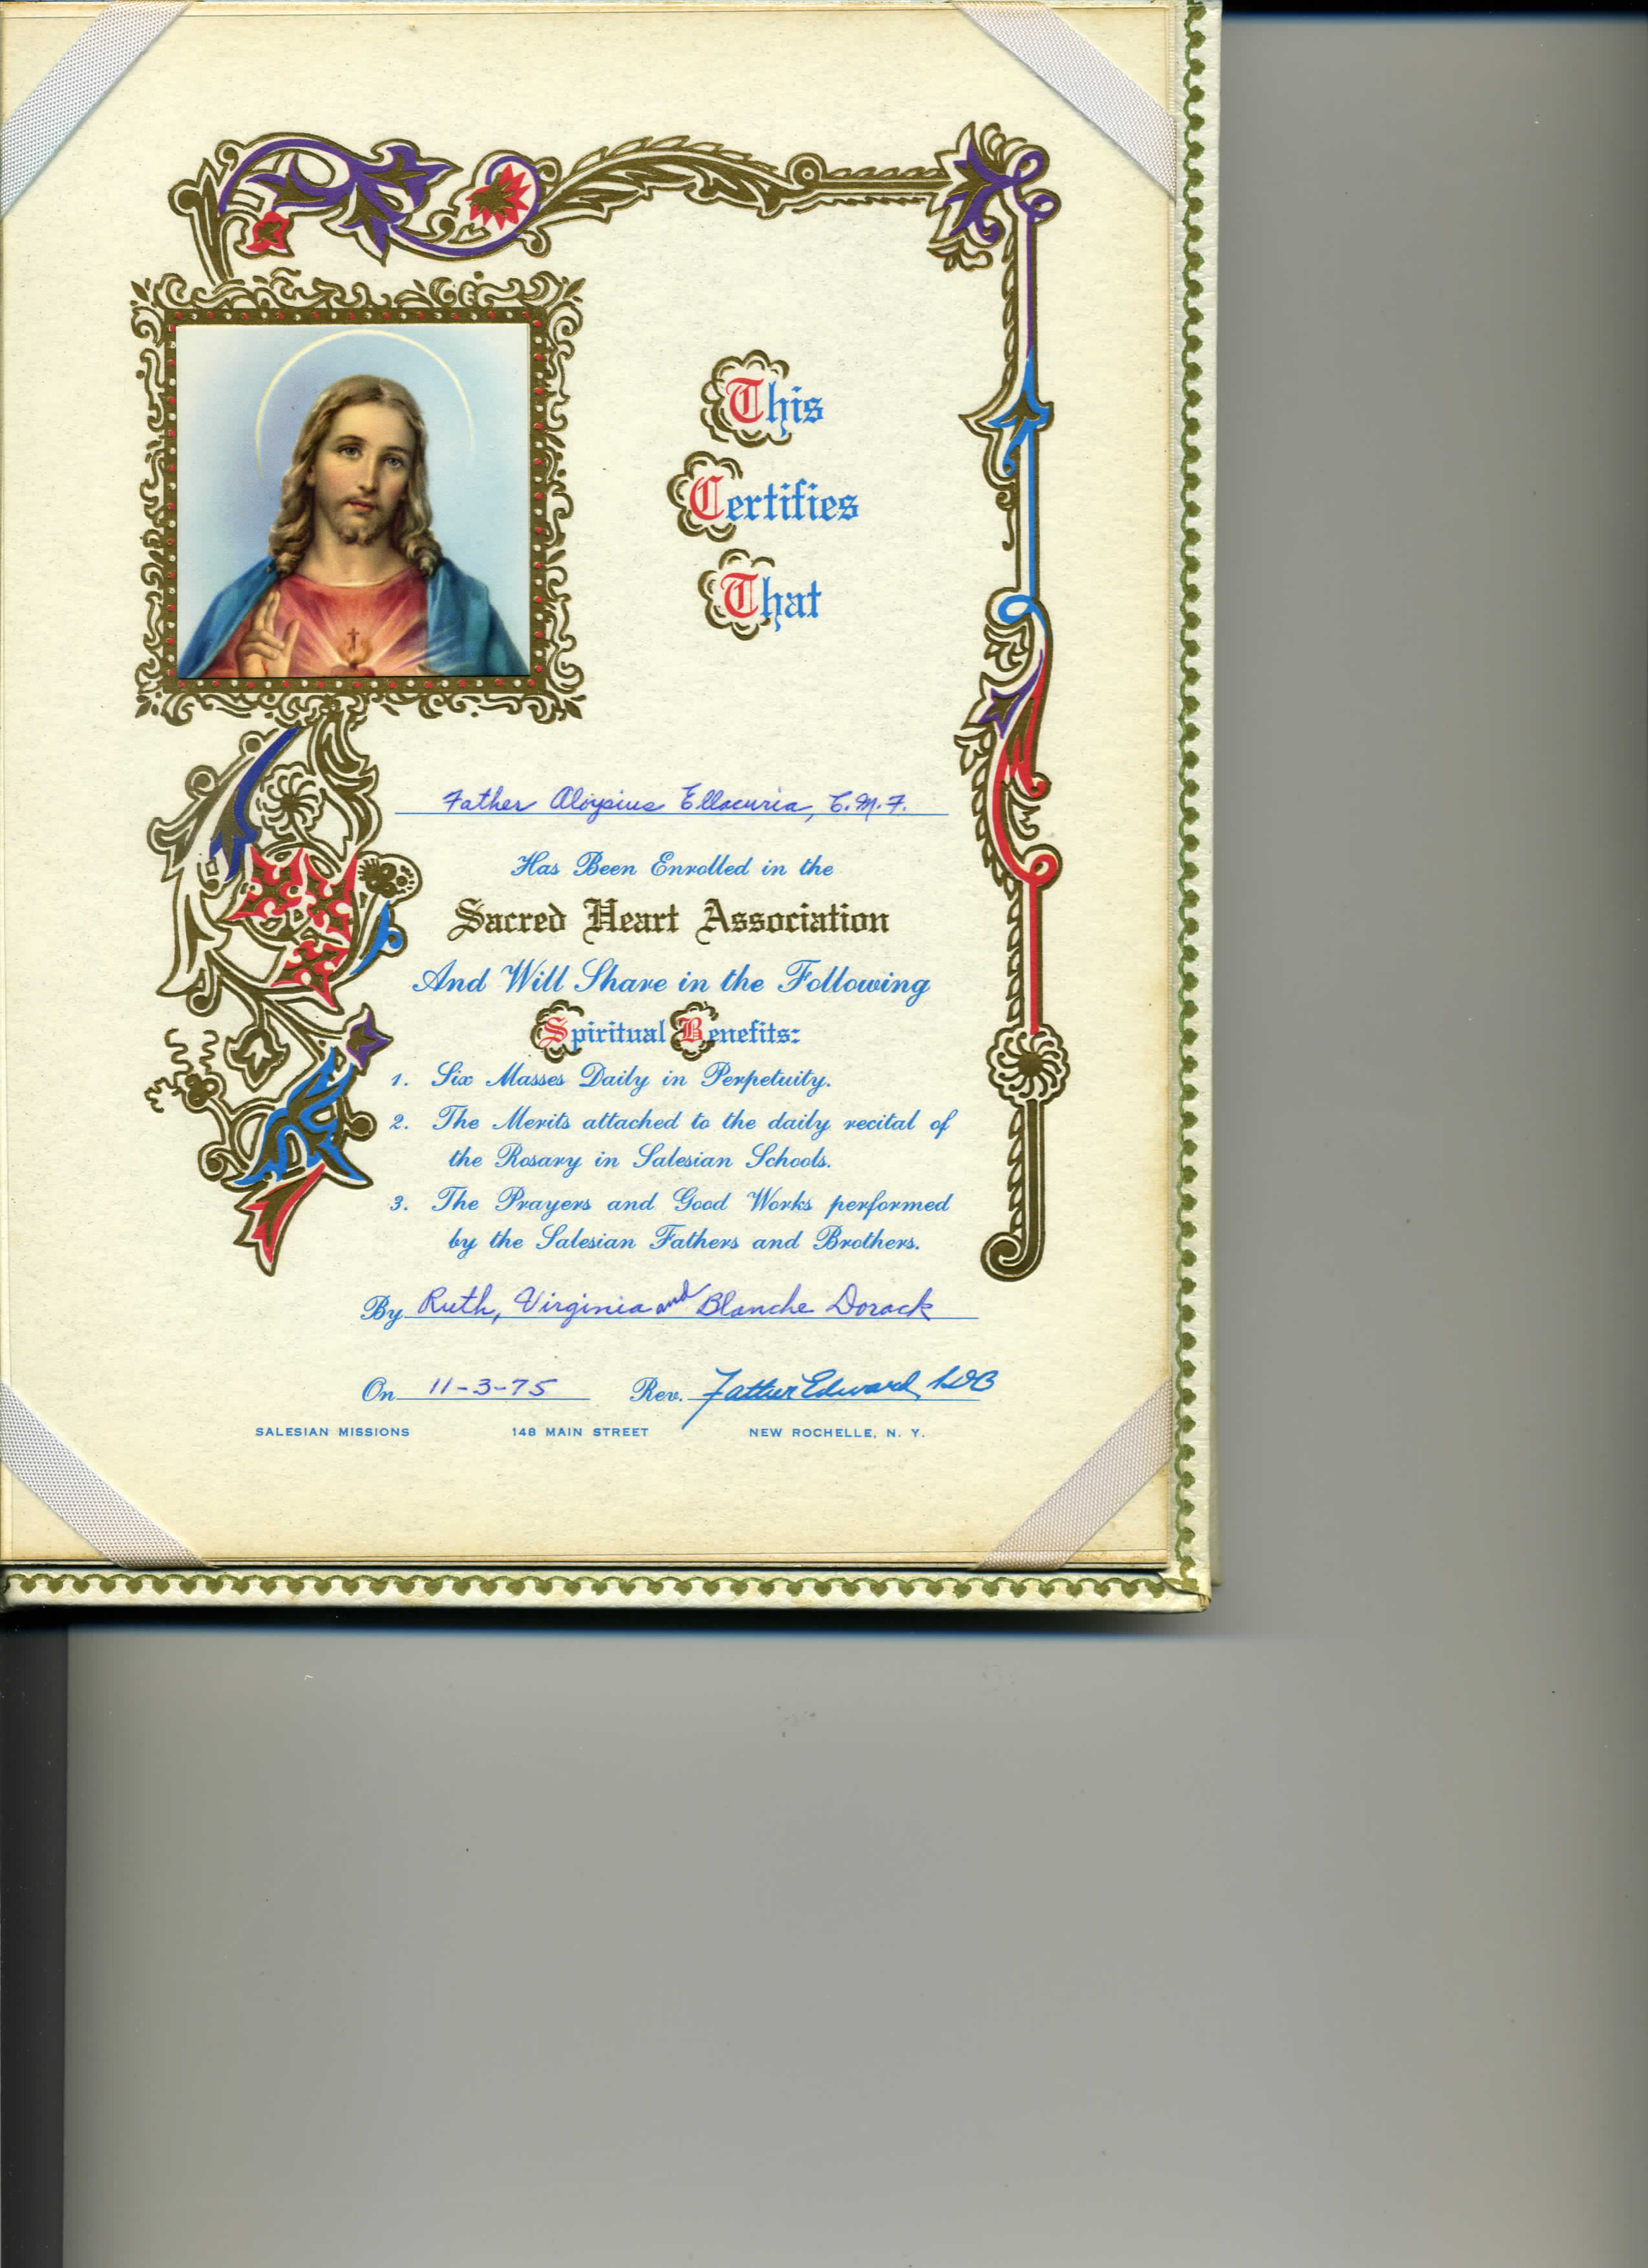 This
Certifies
That
Father Aloysius Ellacuria, C.M.F.
Has Been Enrolled in the
Sacred Heart Association
And Will Share in the Following
Spiritual Benefits:
1. Six Masses Daily in Perpetuity.
2. The Merits attached to the daily recital of
the Rosary in Salesian Schools.
3. The Prayers and Good Works performed
by the Salesian Fathers and Brothers.
By Ruth, Virginia and Blanche Dorack
On 11-3-75 Rev. Father Edward, SDB
SALESIAN MISSIONS 148 MAIN STREET NEW ROCHELLE, N. Y.